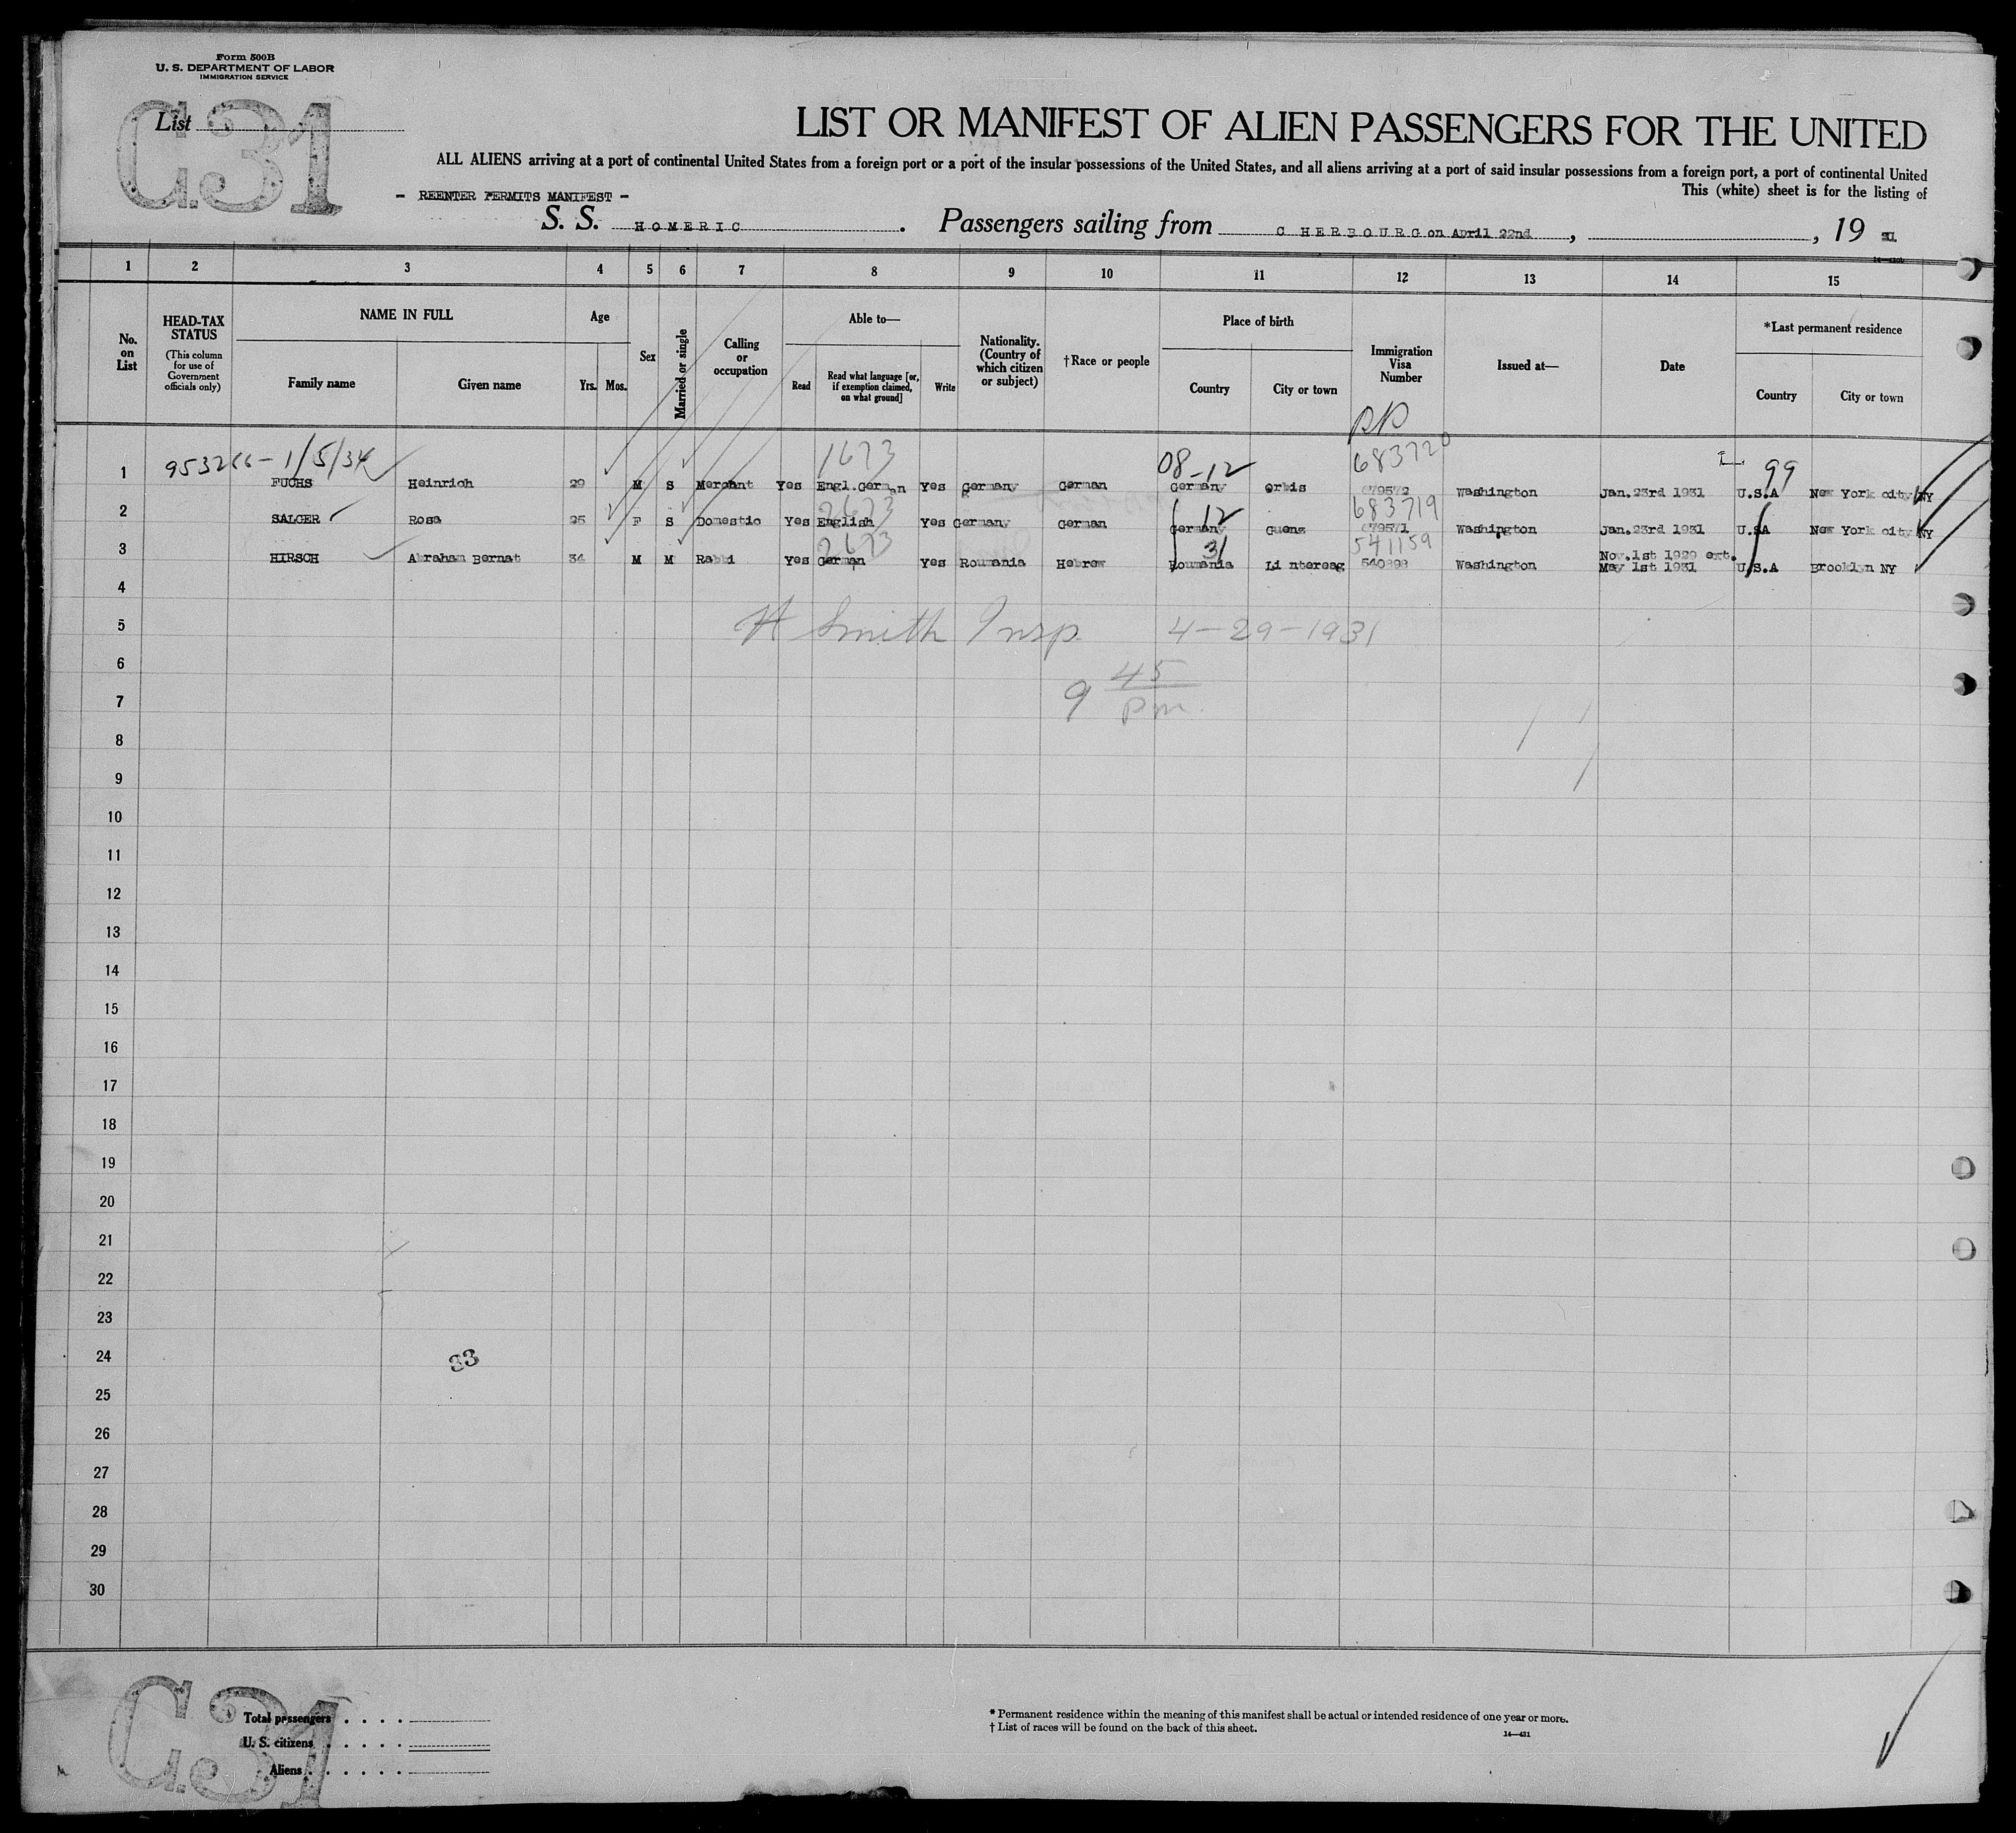 Form 500B
U. S. DEPARTMENT OF LABOR
IMMIGRATION SERVICE
C31
List
LIST OR MANIFEST OF ALIEN PASSENGERS FOR THE UNITED
ALL ALIENS arriving at a port of continental United States from a foreign port or a port of the insular possessions of the United States, and all aliens arriving at a port of said insular possessions from a foreign port, a port of continental United
This (white) sheet is for the listing of
- REENTER PERMITS MANIFEST -
S. S. HOMERIC. Passengers sailing from C HERBOURG on April 22nd, , 19 31
1 2 3 4 5 6 7 8 9 10 11 12 13 14 15
No. on List
HEAD-TAX STATUS
(This column for use of Government officials only)
NAME IN FULL
Family name Given name
Age
Yrs. Mos.
Sex
Married or single
Calling or occupation
Able to—
Read Read what language [or, if exemption claimed, on what ground] Write
Nationality. (Country of which citizen or subject)
†Race or people
Place of birth
Country City or town
Immigration Visa Number
Issued at—
Date
*Last permanent residence
Country City or town
1673 08-12 683720 99
1 FUCHS Heinrich 29 M S Merchant Yes Engl.German Yes Germany German Germany Orbis 679572 Washington Jan.23rd 1931 U.S.A New York city NY
2673 12 683719
2 SALGER Rosa 25 F S Domestic Yes English Yes Germany German Germany Guens 679571 Washington Jan.23rd 1931 U.SA New York city NY
2673 31 541159 Nov.1st 1929 ext.
3 HIRSCH Abraham Bernat 34 M M Rabbi Yes German Yes Roumania Hebrew Roumania Li ntereag 540898 Washington May 1st 1931 U.S.A Brooklyn NY
4
5 H Smith Insp. 4-29-1931
6
9 45 pm.
7
8
9
10
11
12
13
14
15
16
17
18
19
20
21
22
23
24 33
25
26
27
28
29
30
C31
Total passengers
U. S. citizens
Aliens
* Permanent residence within the meaning of this manifest shall be actual or intended residence of one year or more.
† List of races will be found on the back of this sheet.
14—431